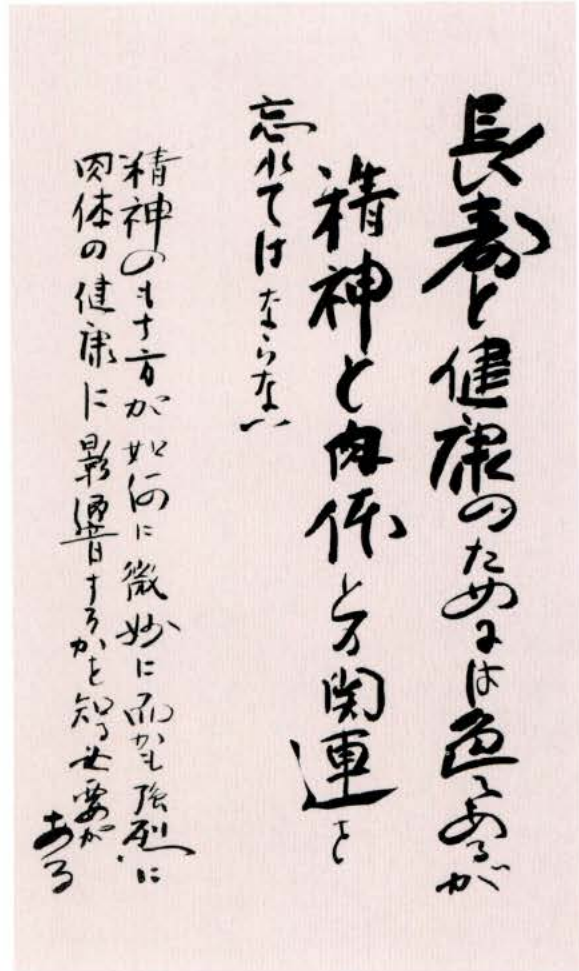 長寿と健康のためには色々あるが
精神と肉体との関連を
忘れてはならない
精神のもち方が如何に微妙に而かも強烈に
肉体の健康に影響するかを知る必要が
ある